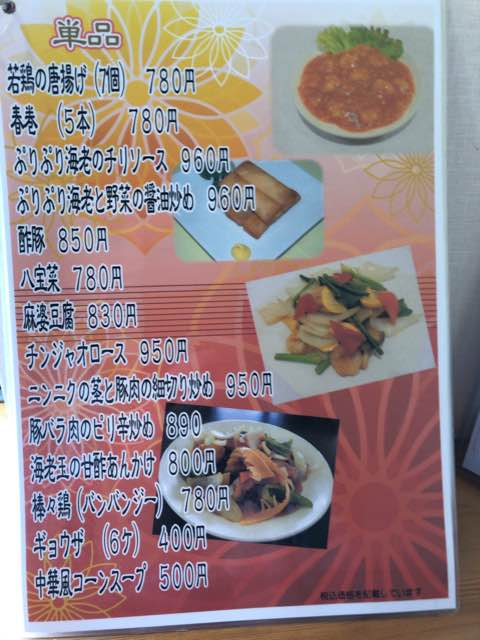 単品
若鶏の唐揚げ (7個) 780円
春巻 (5本) 780円
ぷりぷり海老のチリソース 960円
ぷりぷり海老と野菜の醤油炒め 960円
酢豚 850円
八宝菜 780円
麻婆豆腐 830円
チンジャオロース 950円
ニンニクの茎と豚肉の細切り炒め 950円
豚バラ肉のピリ辛炒め 890
海老玉の甘酢あんかけ 800円
棒々鶏 (バンバンジー) 780円
ギョウザ (6ケ) 400円
中華風コーンスープ 500円
税込価格を記載しています